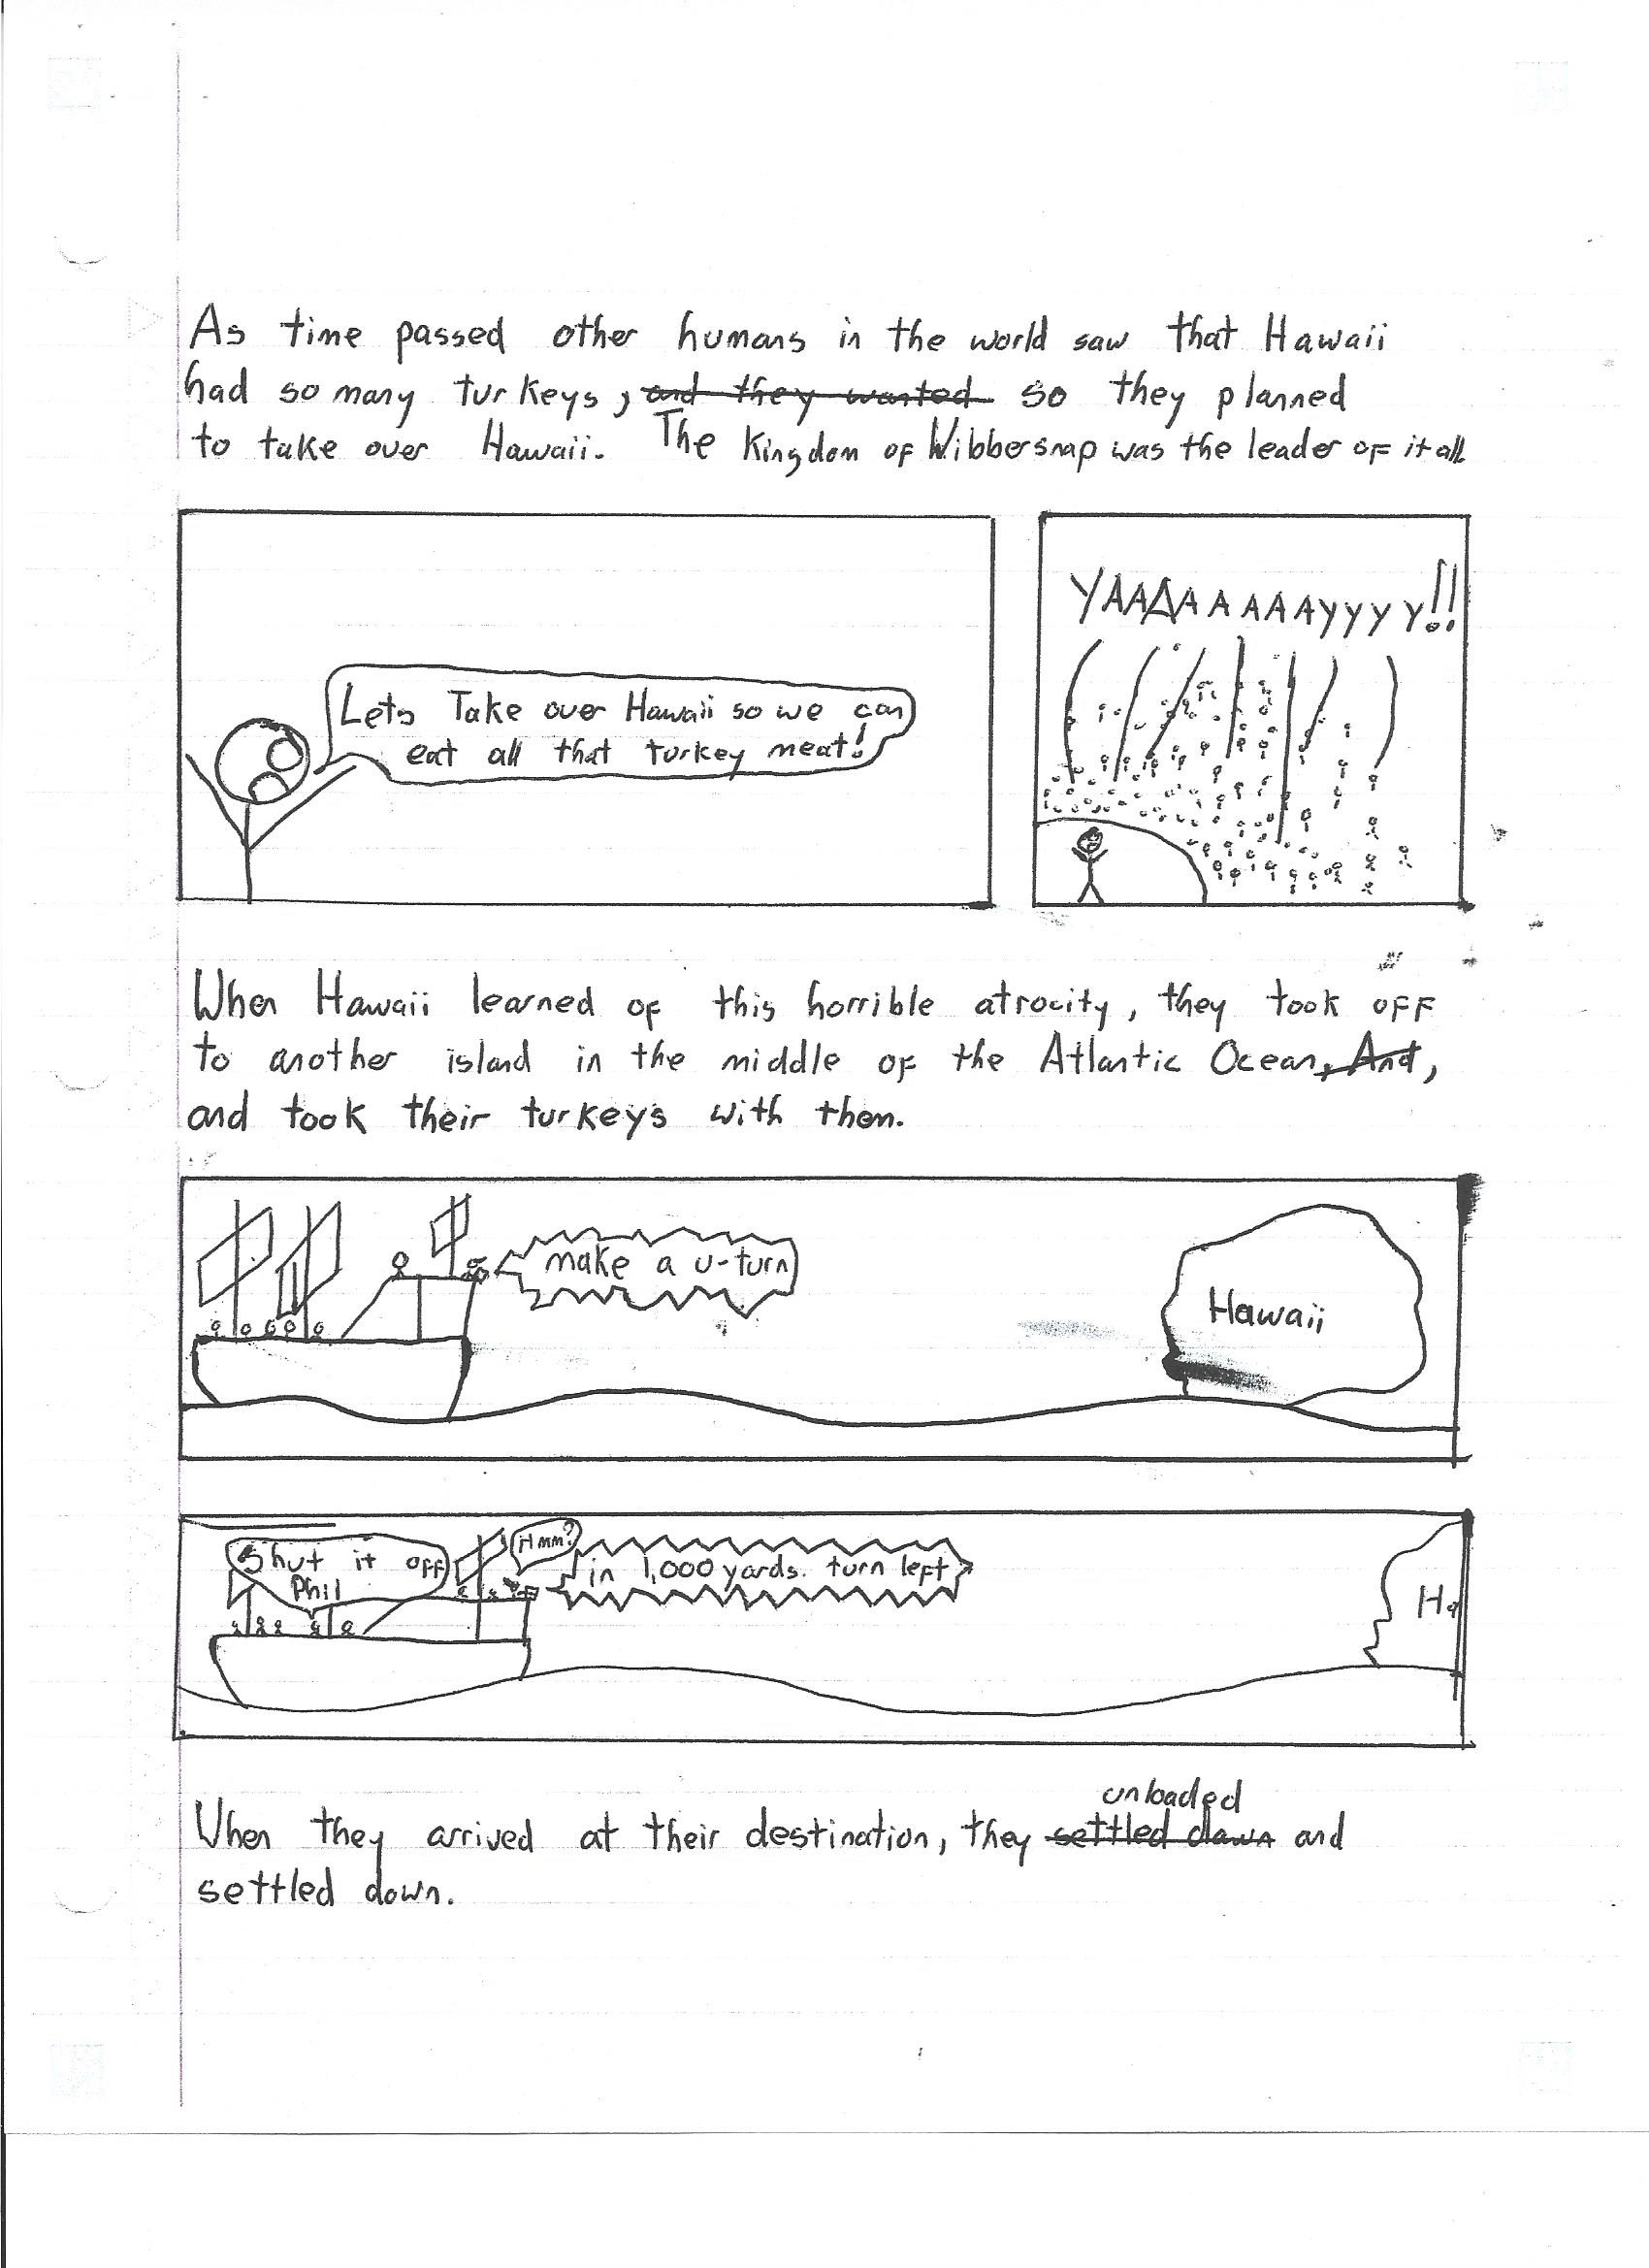 As time passed other humans in the world saw that Hawaii
had so many turkeys, and they wanted so they planned
to take over Hawaii. The Kingdom of Wibbersnap was the leader of it all
Lets Take over Hawaii so we can
eat all that turkey meat!
YAAAAAAAAYYYY!!
When Hawaii learned of this horrible atrocity, they took off
to another island in the middle of the Atlantic Ocean, And,
and took their turkeys with them.
make a u-turn
Hawaii
Shut it off
Phil
Hmm?
in 1,000 yards. turn left
Ha
When they arrived at their destination, they settled down and
unloaded
settled down.